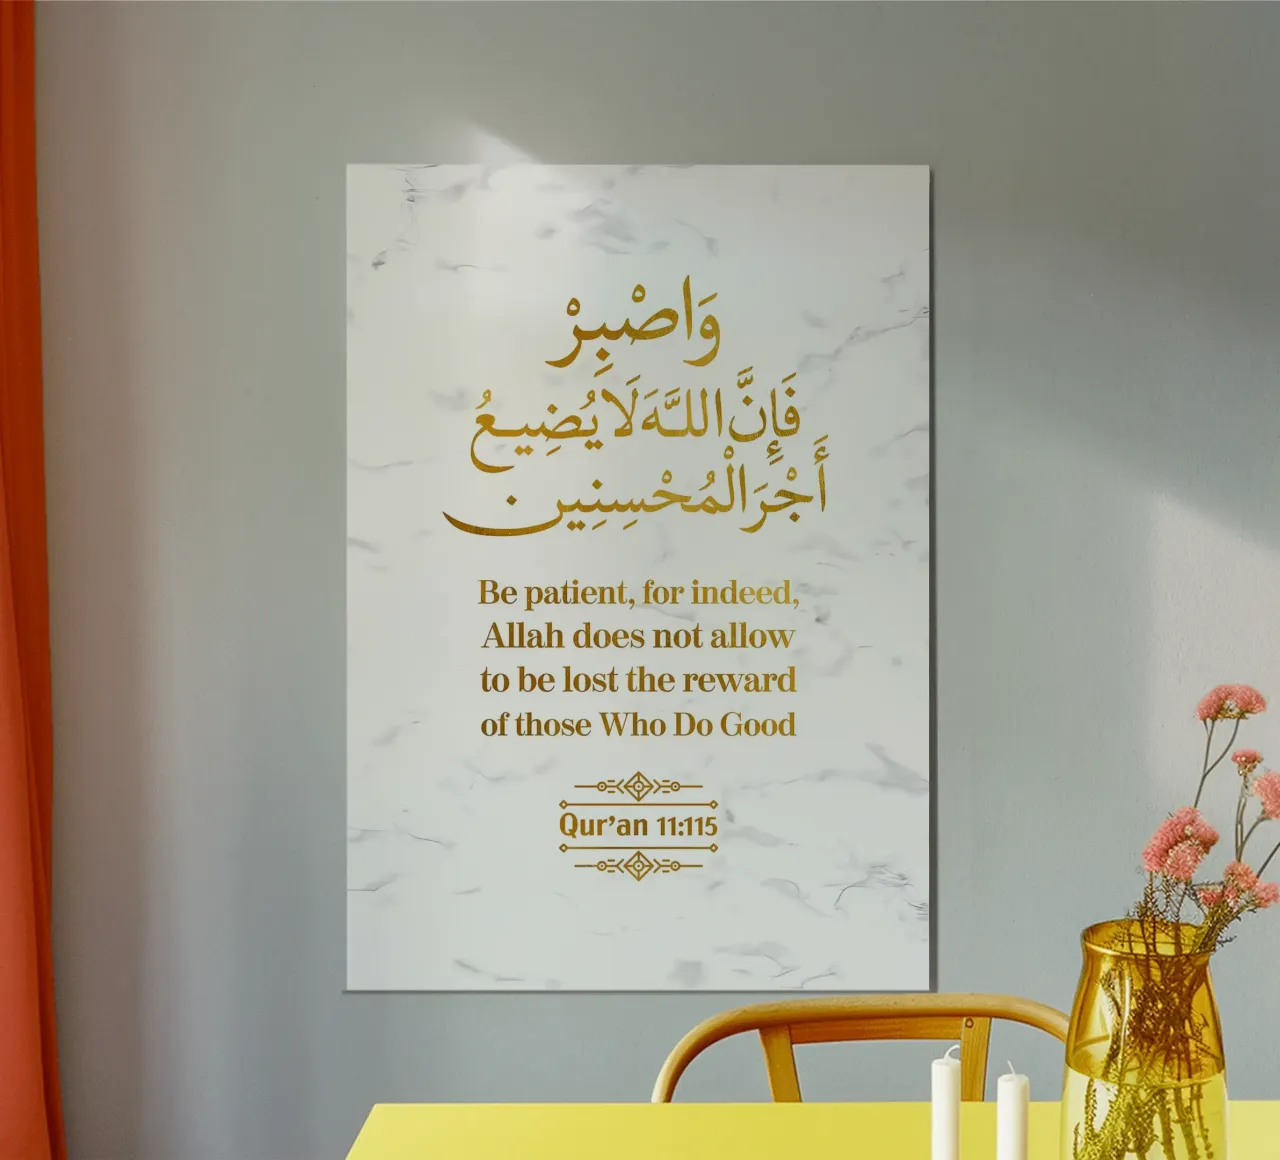 وَاصْبِرْ
فَإِنَّ اللَّهَ لَا يُضِيعُ
أَجْرَ الْمُحْسِنِين
Be patient, for indeed,
Allah does not allow
to be lost the reward
of those Who Do Good
Qur’an 11:115